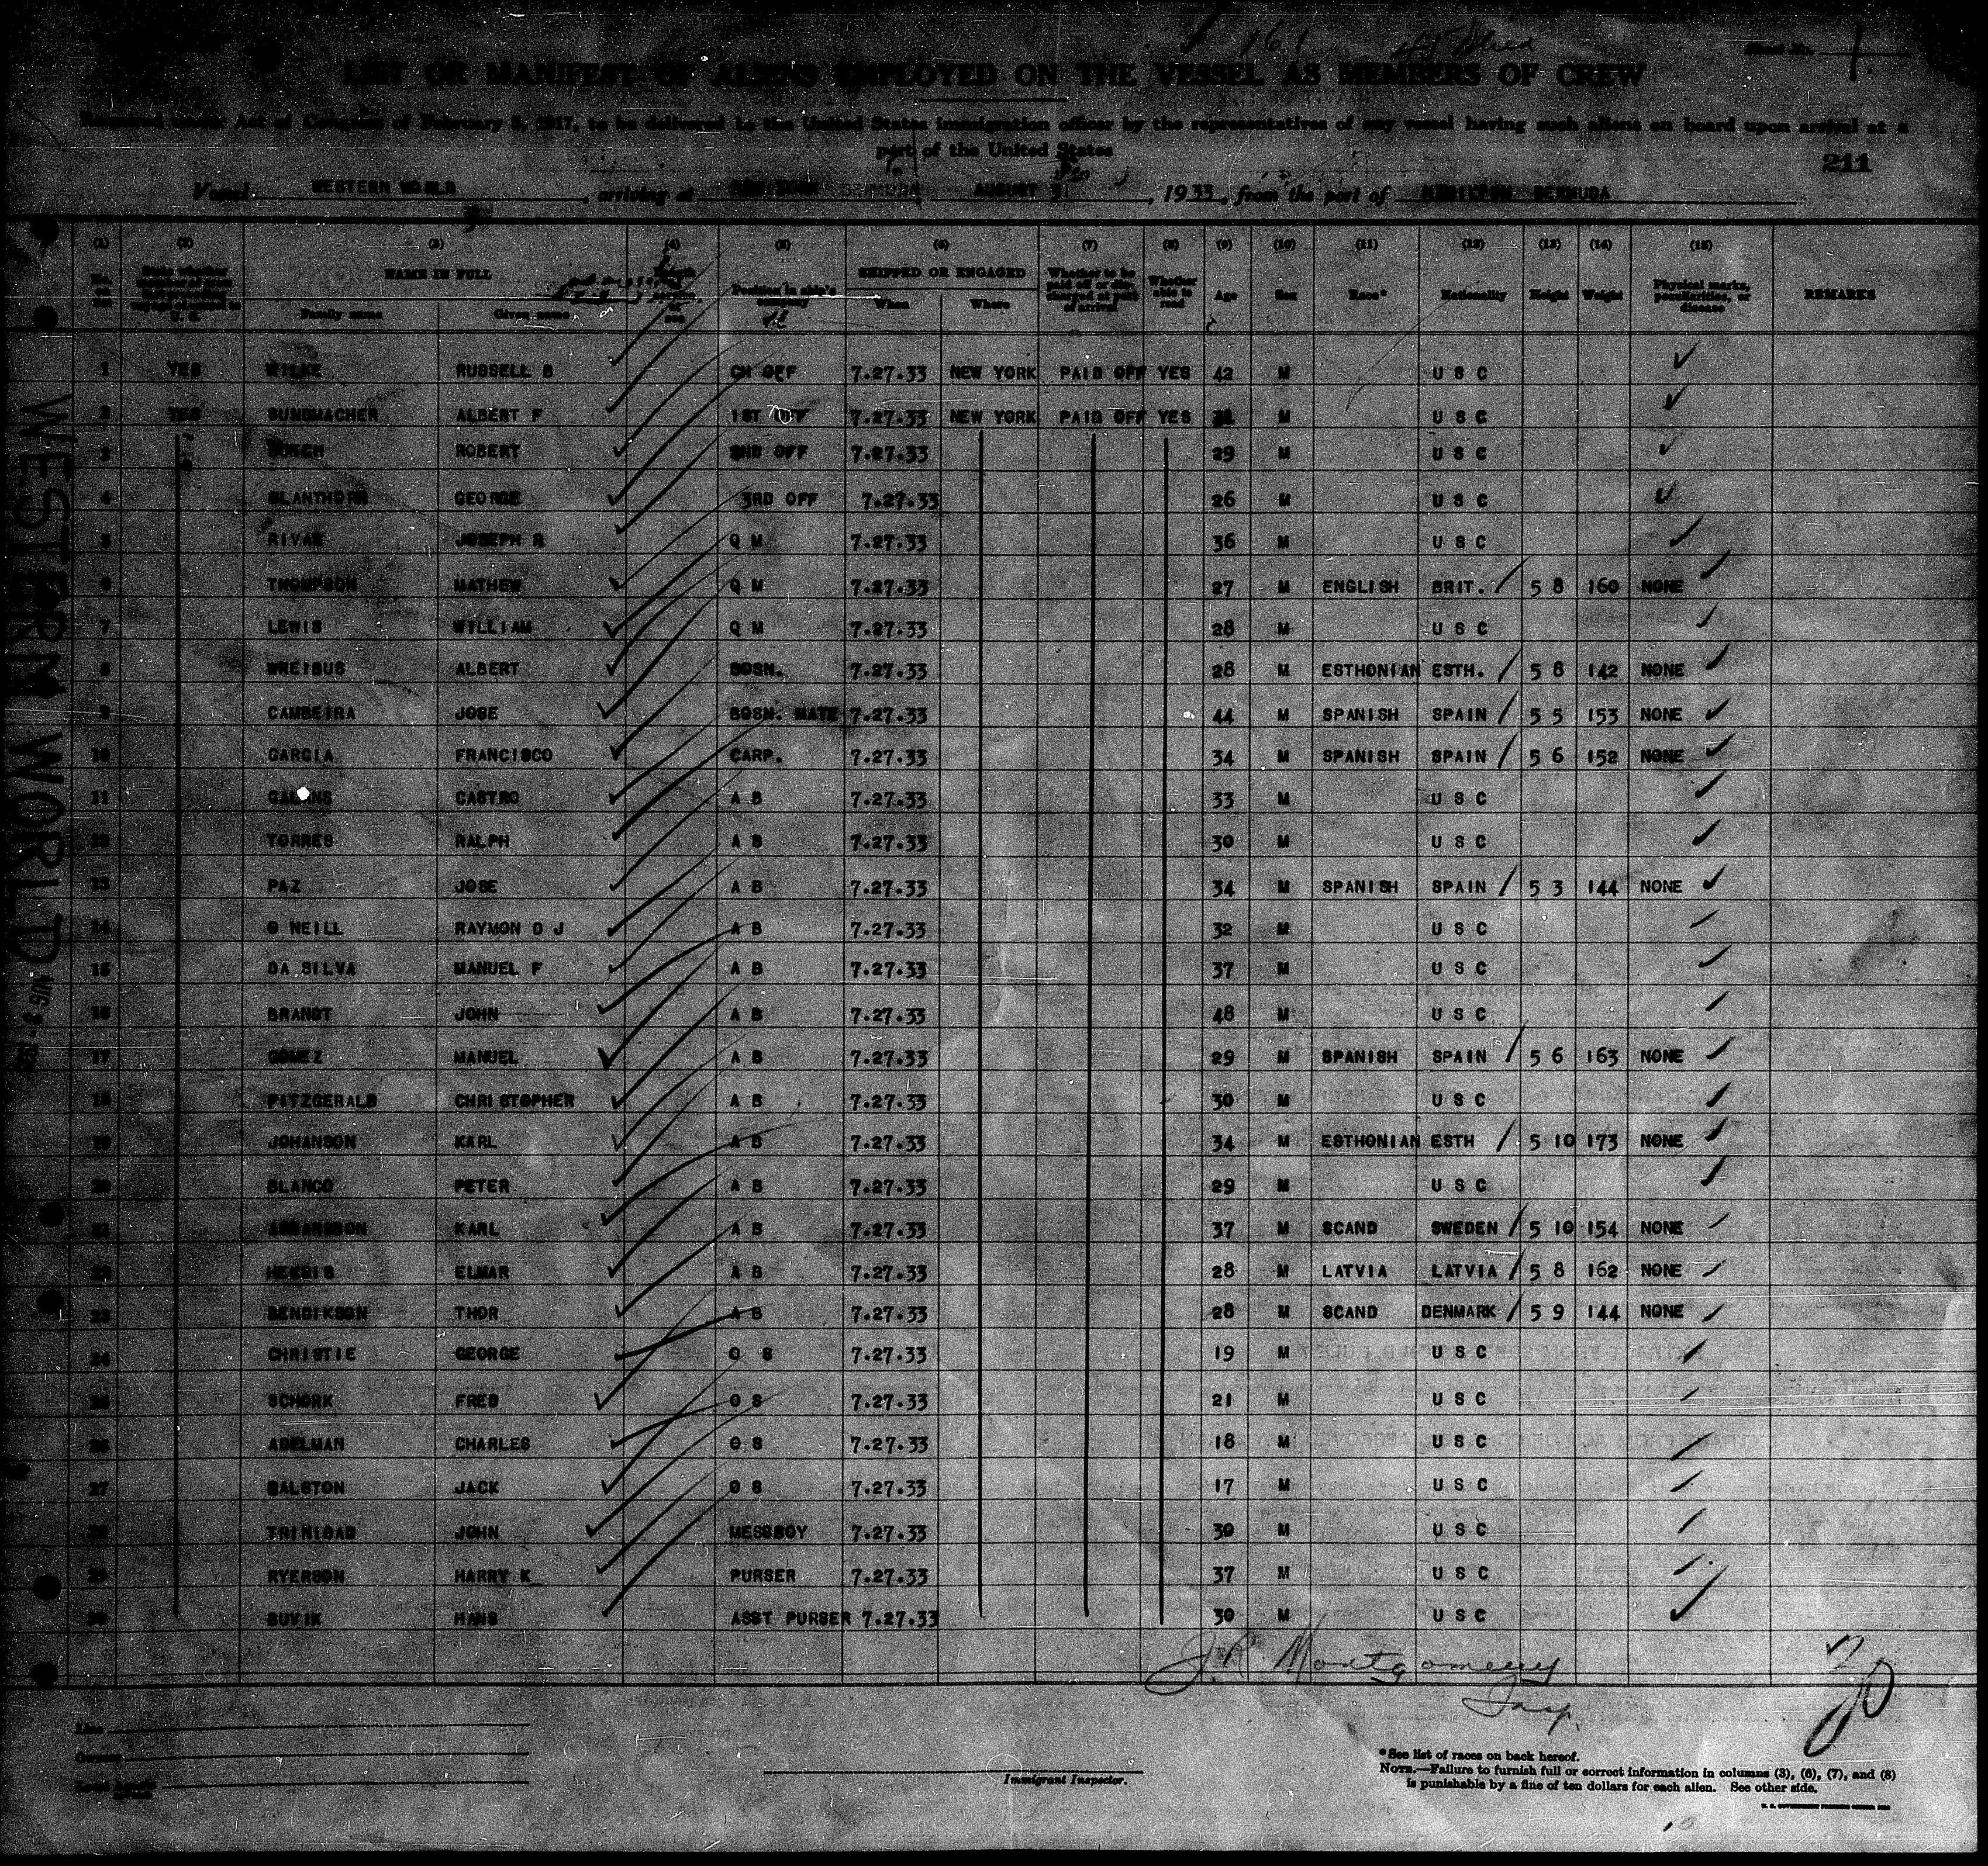 161
Sheet No. 1.
LIST OR MANIFEST OF ALIENS EMPLOYED ON THE VESSEL AS MEMBERS OF CREW
Required under Act of Congress of February 5, 1917, to be delivered to the United States immigration officer by the representatives of any vessel having such aliens on board upon arrival at a
port of the United States
211
Vessel WESTERN WORLD, arriving at BERMUDA AUGUST, 1933, from the port of HAMILTON BERMUDA
(1) (2) (3) (4) (5) (6) (7) (8) (9) (10) (11) (12) (13) (14) (15)
NAME IN FULL
Family name Given name
Position in ship's company
SHIPPED OR ENGAGED
When Where
Whether to be paid off or discharged at port of arrival
Whether able to read
Age Sex Race* Nationality Height Weight
Physical marks, peculiarities, or disease
REMARKS
1 YES WILKE RUSSELL B CH OFF 7.27.33 NEW YORK PAID OFF YES 42 M U S C
2 YES SUNDMACHER ALBERT F 1ST OFF 7.27.33 NEW YORK PAID OFF YES M U S C
3 ROBERT 2ND OFF 7.27.33 29 M U S C
4 BLANTHORN GEORGE 3RD OFF 7.27.33 26 M U S C
5 RIVAS JOSEPH R Q M 7.27.33 36 M U S C
6 THOMPSON MATHEW Q M 7.27.33 27 M ENGLISH BRIT. 5 8 160 NONE
7 LEWIS WILLIAM Q M 7.27.33 28 M U S C
8 WREIBUS ALBERT BOSN. 7.27.33 28 M ESTHONIAN ESTH. 5 8 142 NONE
9 CAMBEIRA JOSE BOSN. MATE 7.27.33 44 M SPANISH SPAIN 5 5 153 NONE
10 GARCIA FRANCISCO CARP. 7.27.33 34 M SPANISH SPAIN 5 6 152 NONE
11 CASTRO A B 7.27.33 33 M U S C
12 TORRES RALPH A B 7.27.33 30 M U S C
13 PAZ JOSE A B 7.27.33 34 M SPANISH SPAIN 5 3 144 NONE
14 O NEILL RAYMON D J A B 7.27.33 32 M U S C
15 DA SILVA MANUEL F A B 7.27.33 37 M U S C
16 BRANDT JOHN A B 7.27.33 48 M U S C
17 GOMEZ MANUEL A B 7.27.33 29 M SPANISH SPAIN 5 6 163 NONE
18 FITZGERALD CHRISTOPHER A B 7.27.33 30 M U S C
19 JOHANSON KARL A B 7.27.33 34 M ESTHONIAN ESTH 5 10 173 NONE
20 BLANCO PETER A B 7.27.33 29 M U S C
21 KARL A B 7.27.33 37 M SCAND SWEDEN 5 10 154 NONE
22 ELMAR A B 7.27.33 28 M LATVIA LATVIA 5 8 162 NONE
23 BENDIKSON THOR A B 7.27.33 28 M SCAND DENMARK 5 9 144 NONE
24 CHRISTIE GEORGE O S 7.27.33 19 M U S C
25 SCHORK FRED O S 7.27.33 21 M U S C
26 ADELMAN CHARLES O S 7.27.33 18 M U S C
27 RALSTON JACK O S 7.27.33 17 M U S C
28 TRINIDAD JOHN MESSBOY 7.27.33 30 M U S C
29 RYERSON HARRY K PURSER 7.27.33 37 M U S C
30 SUVIK HANS ASST PURSER 7.27.33 30 M U S C
J.R. Montgomery
Insp.
30
Line
Owners
Immigrant Inspector.
*See list of races on back hereof.
NOTE.—Failure to furnish full or correct information in columns (3), (6), (7), and (8)
is punishable by a fine of ten dollars for each alien. See other side.
WESTERN WORLD